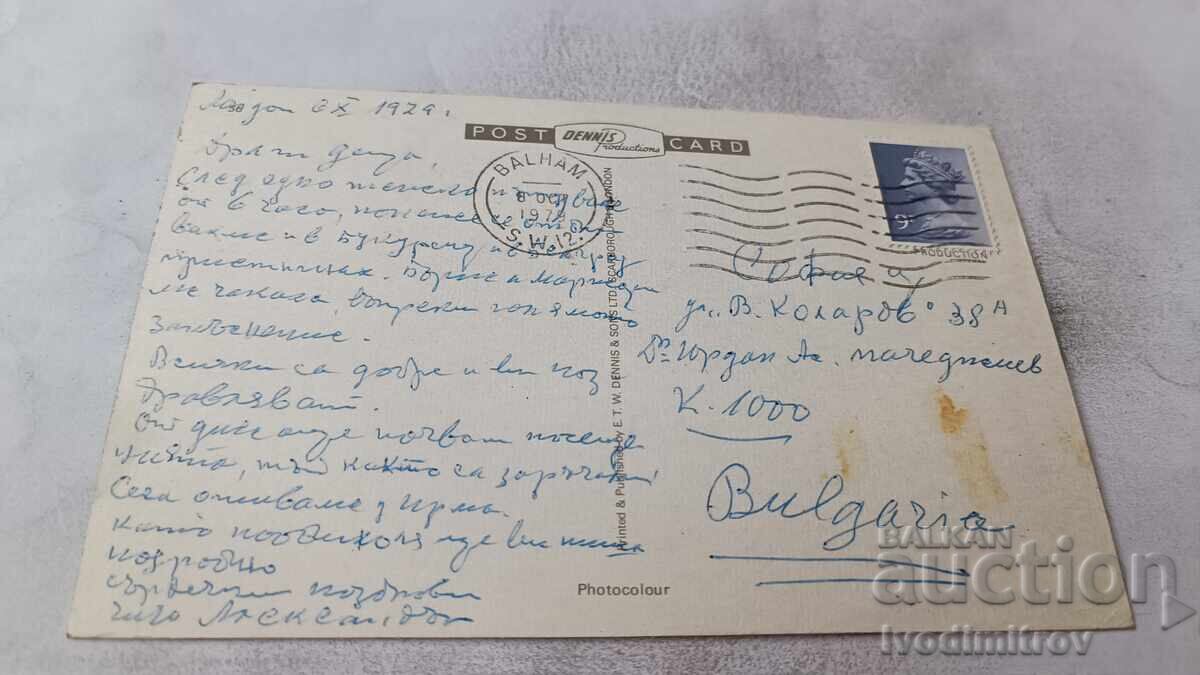 Лондон 6 X 1979 г.
Драги деца,
След едно тежко пътуване
от 6 часа, понеже се отби
вахме и в Букурещ и Белград
пристигнах. Борис и Марг
ме чакаха въпреки голямото
закъснение.
Всички са добре и ви поз
дравляват.
От днес още почват посеще
нията, тъй както са заръчани
Сега отиваме у Ирма.
Като пообиколя ще ви пиша
подробно
Сърдечни поздрави
чичо Александър
POST DENNIS Productions CARD
BALHAM
8 OC
1979
S.W.12.
Printed & Published by E. T. W. DENNIS & SONS LTD. SCARBOROUGH & LONDON
9P
PRODUCTION
София
ул. „В. Коларов" 38 А
Др Юрдан Ас.
К. 1000
Bulgaria
Photocolour
BALKAN
auction
Ivodimitrov